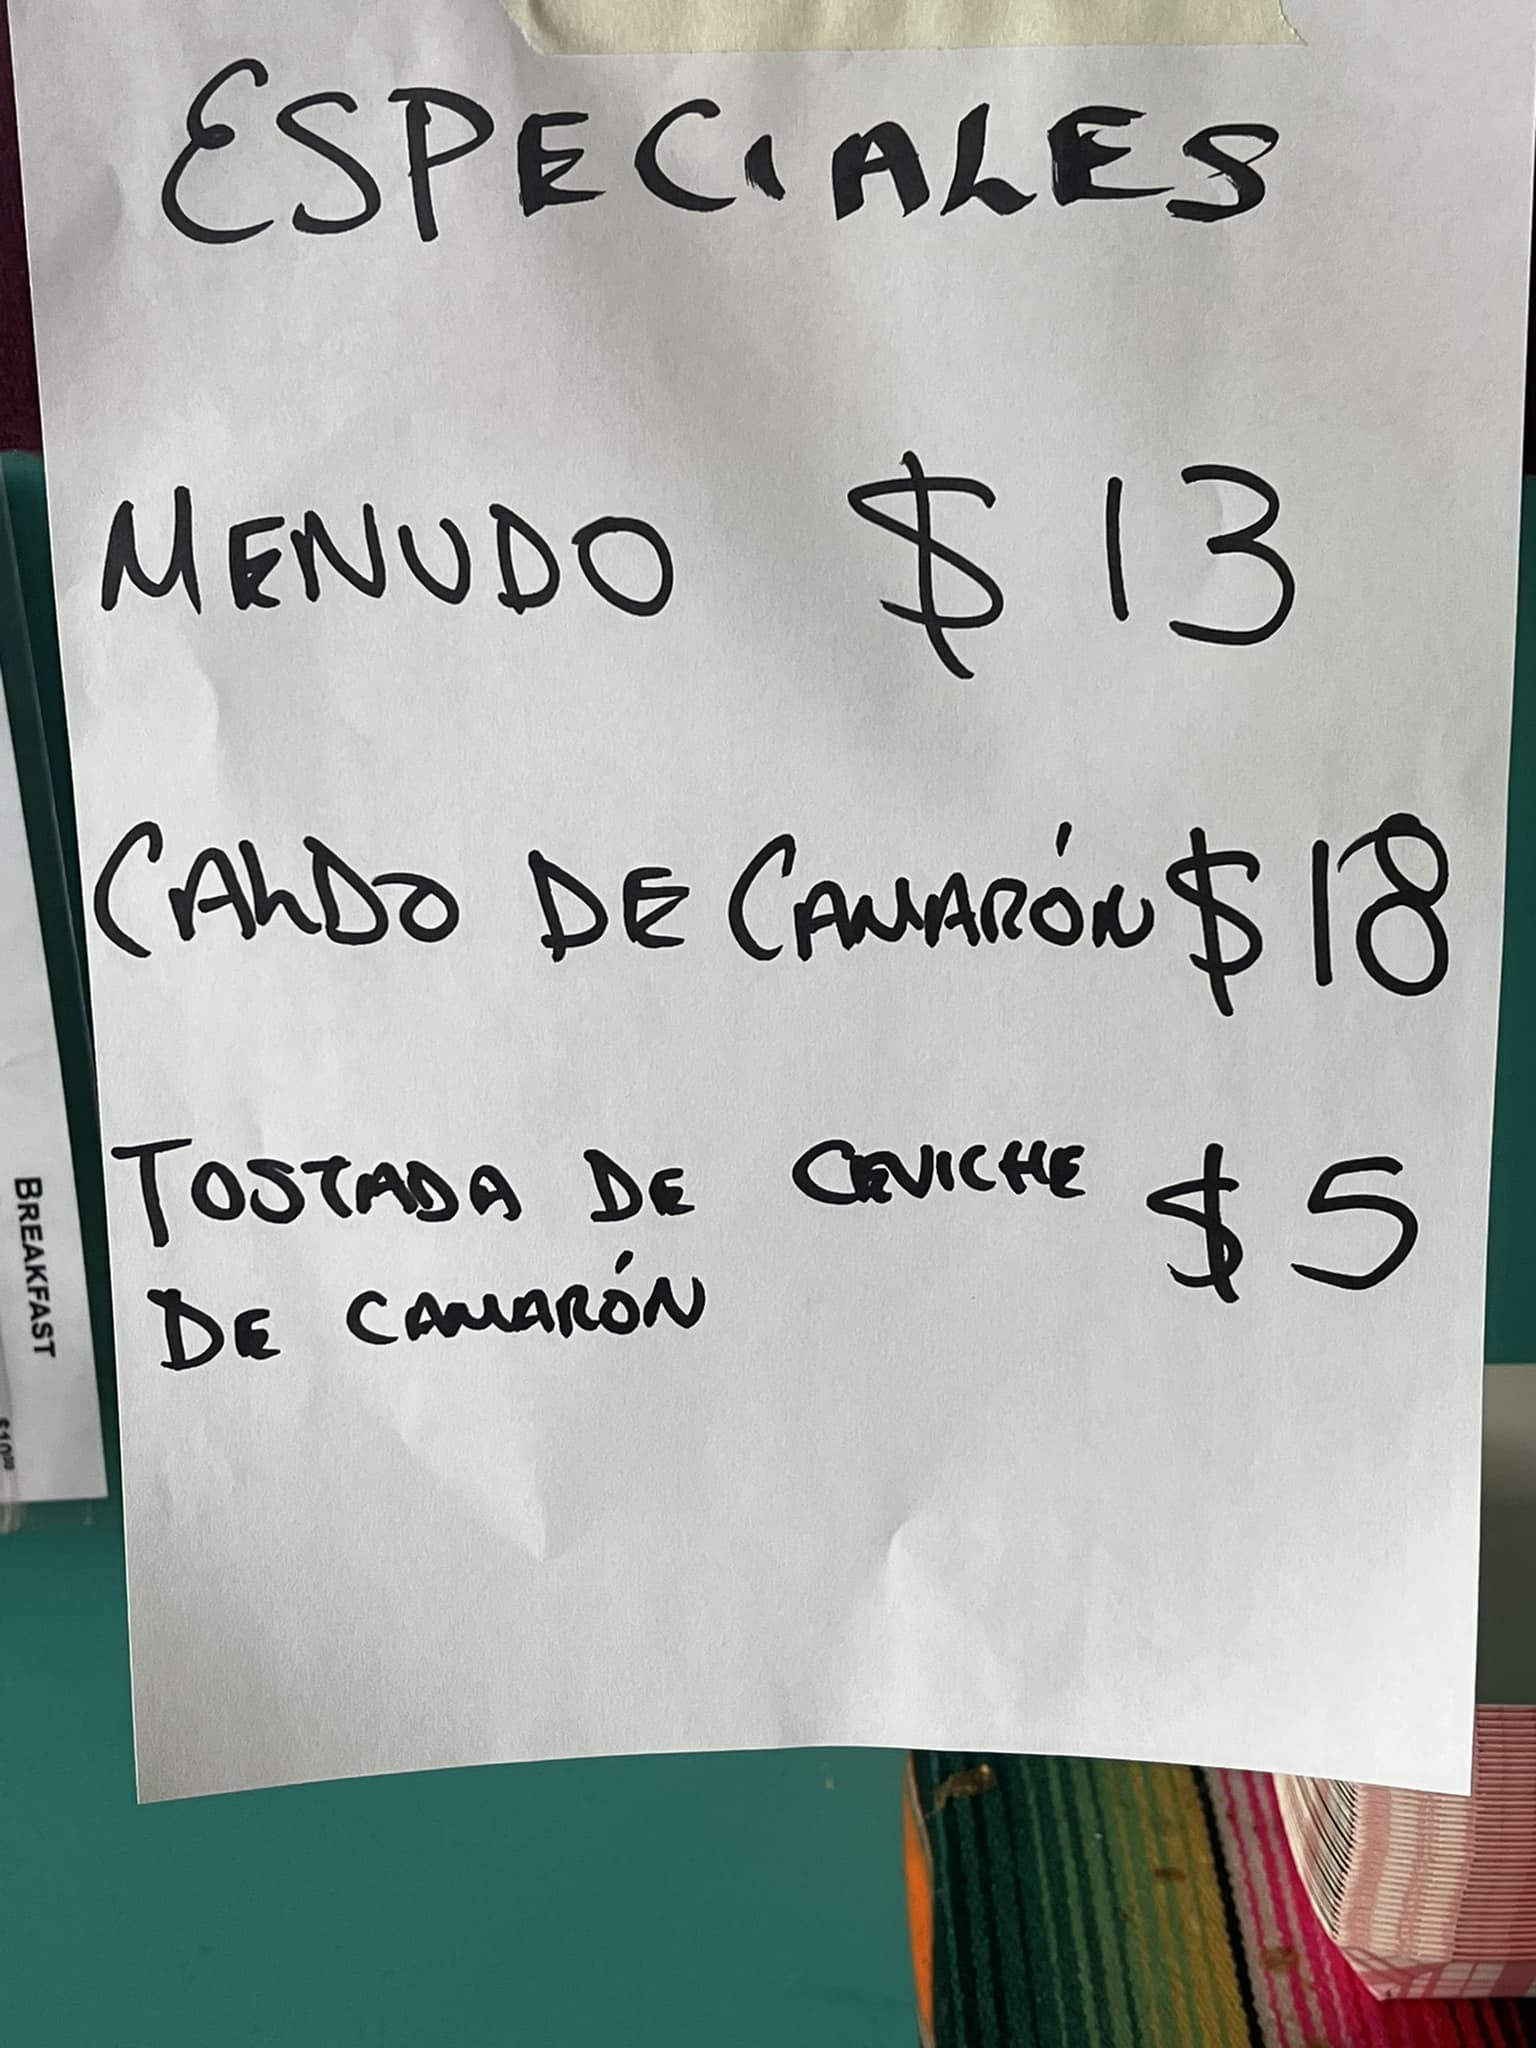 ESPECIALES
MENUDO $13
CALDO DE CAMARÓN $18
TOSTADA DE CEVICHE $5
DE CAMARÓN
BREAKFAST